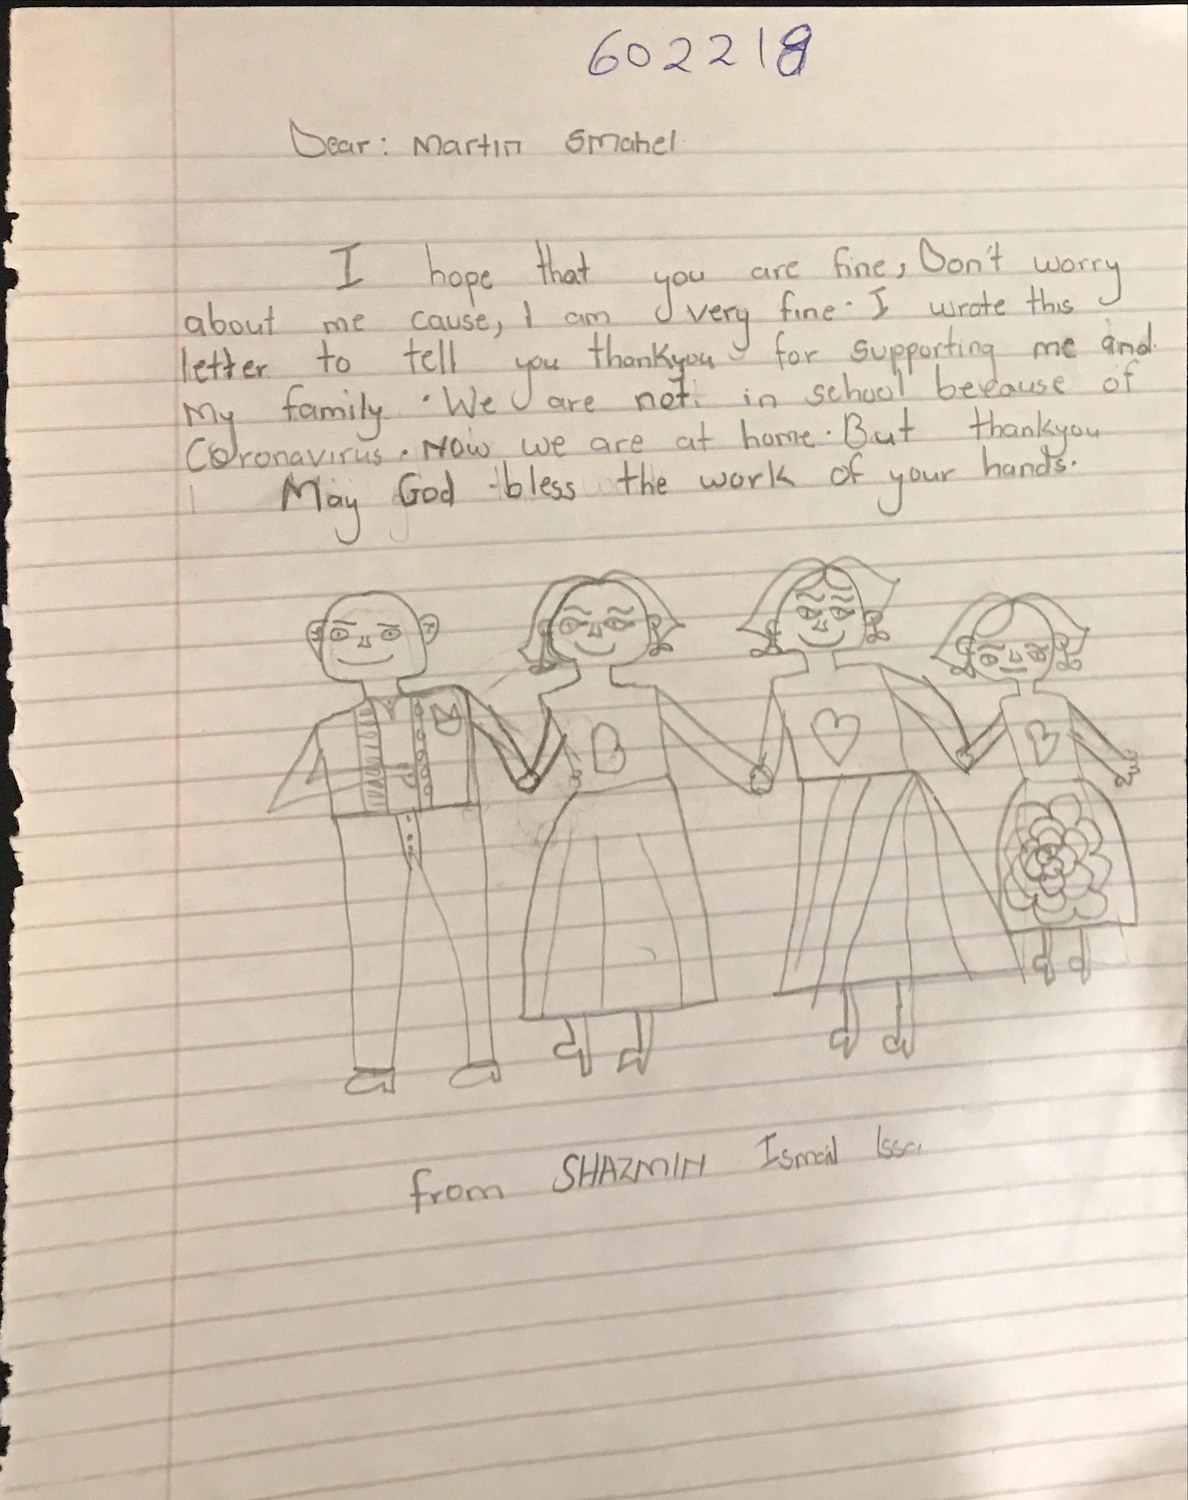 602218
Dear: Martin Smahel
I hope that you are fine, Don't worry
about me cause, I am very fine. I wrote this
letter to tell you thankyou for supporting me and
My family. We are not in school because of
Coronavirus. Now we are at home. But thankyou
May God bless the work of your hands.
from SHAZMIN Ismail Issa